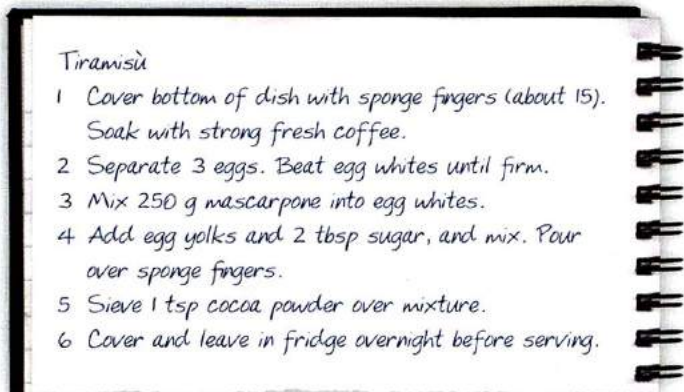 Tiramisù
1 Cover bottom of dish with sponge fingers (about 15).
Soak with strong fresh coffee.
2 Separate 3 eggs. Beat egg whites until firm.
3 Mix 250 g mascarpone into egg whites.
4 Add egg yolks and 2 tbsp sugar, and mix. Pour
over sponge fingers.
5 Sieve 1 tsp cocoa powder over mixture.
6 Cover and leave in fridge overnight before serving.